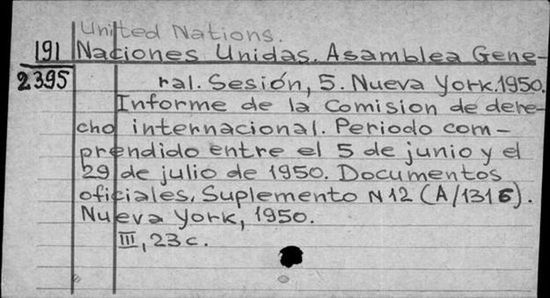 United Nations.
191 Naciones Unidas. Asamblea Gene-
2395 ral. Sesión, 5. Nueva York.1950.
Informe de la Comision de dere-
cho internacional. Periodo com-
prendido entre el 5 de junio y el
29 de julio de 1950. Documentos
oficiales. Suplemento N12 (A/1316).
Nueva York, 1950.
III, 23c.